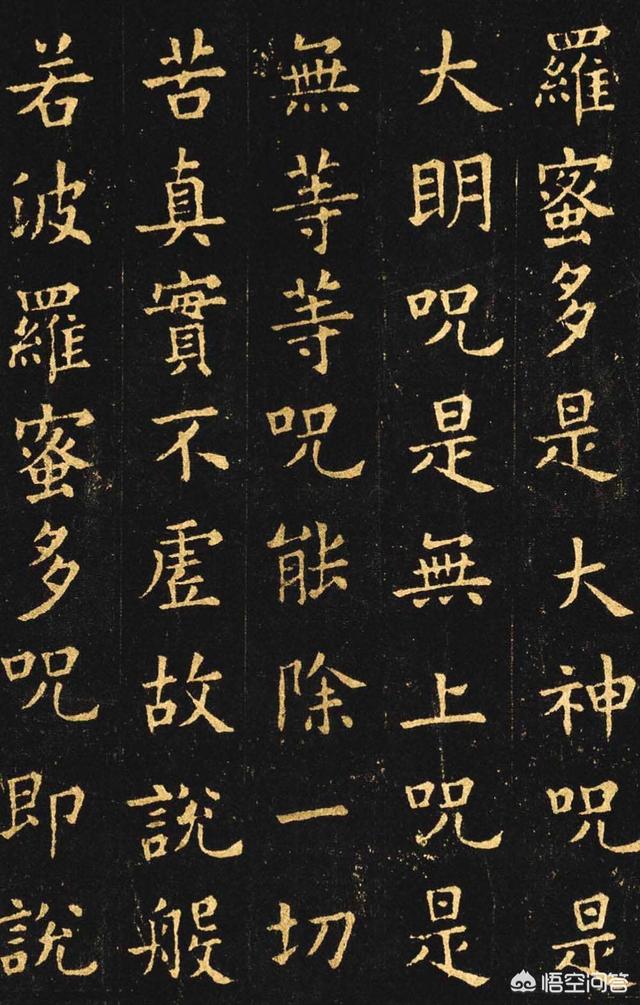 羅蜜多是大神呪是
大明呪是無上呪是
無等等呪能除一切
苦真實不虛故說般
若波羅蜜多呪即說
悟空问答